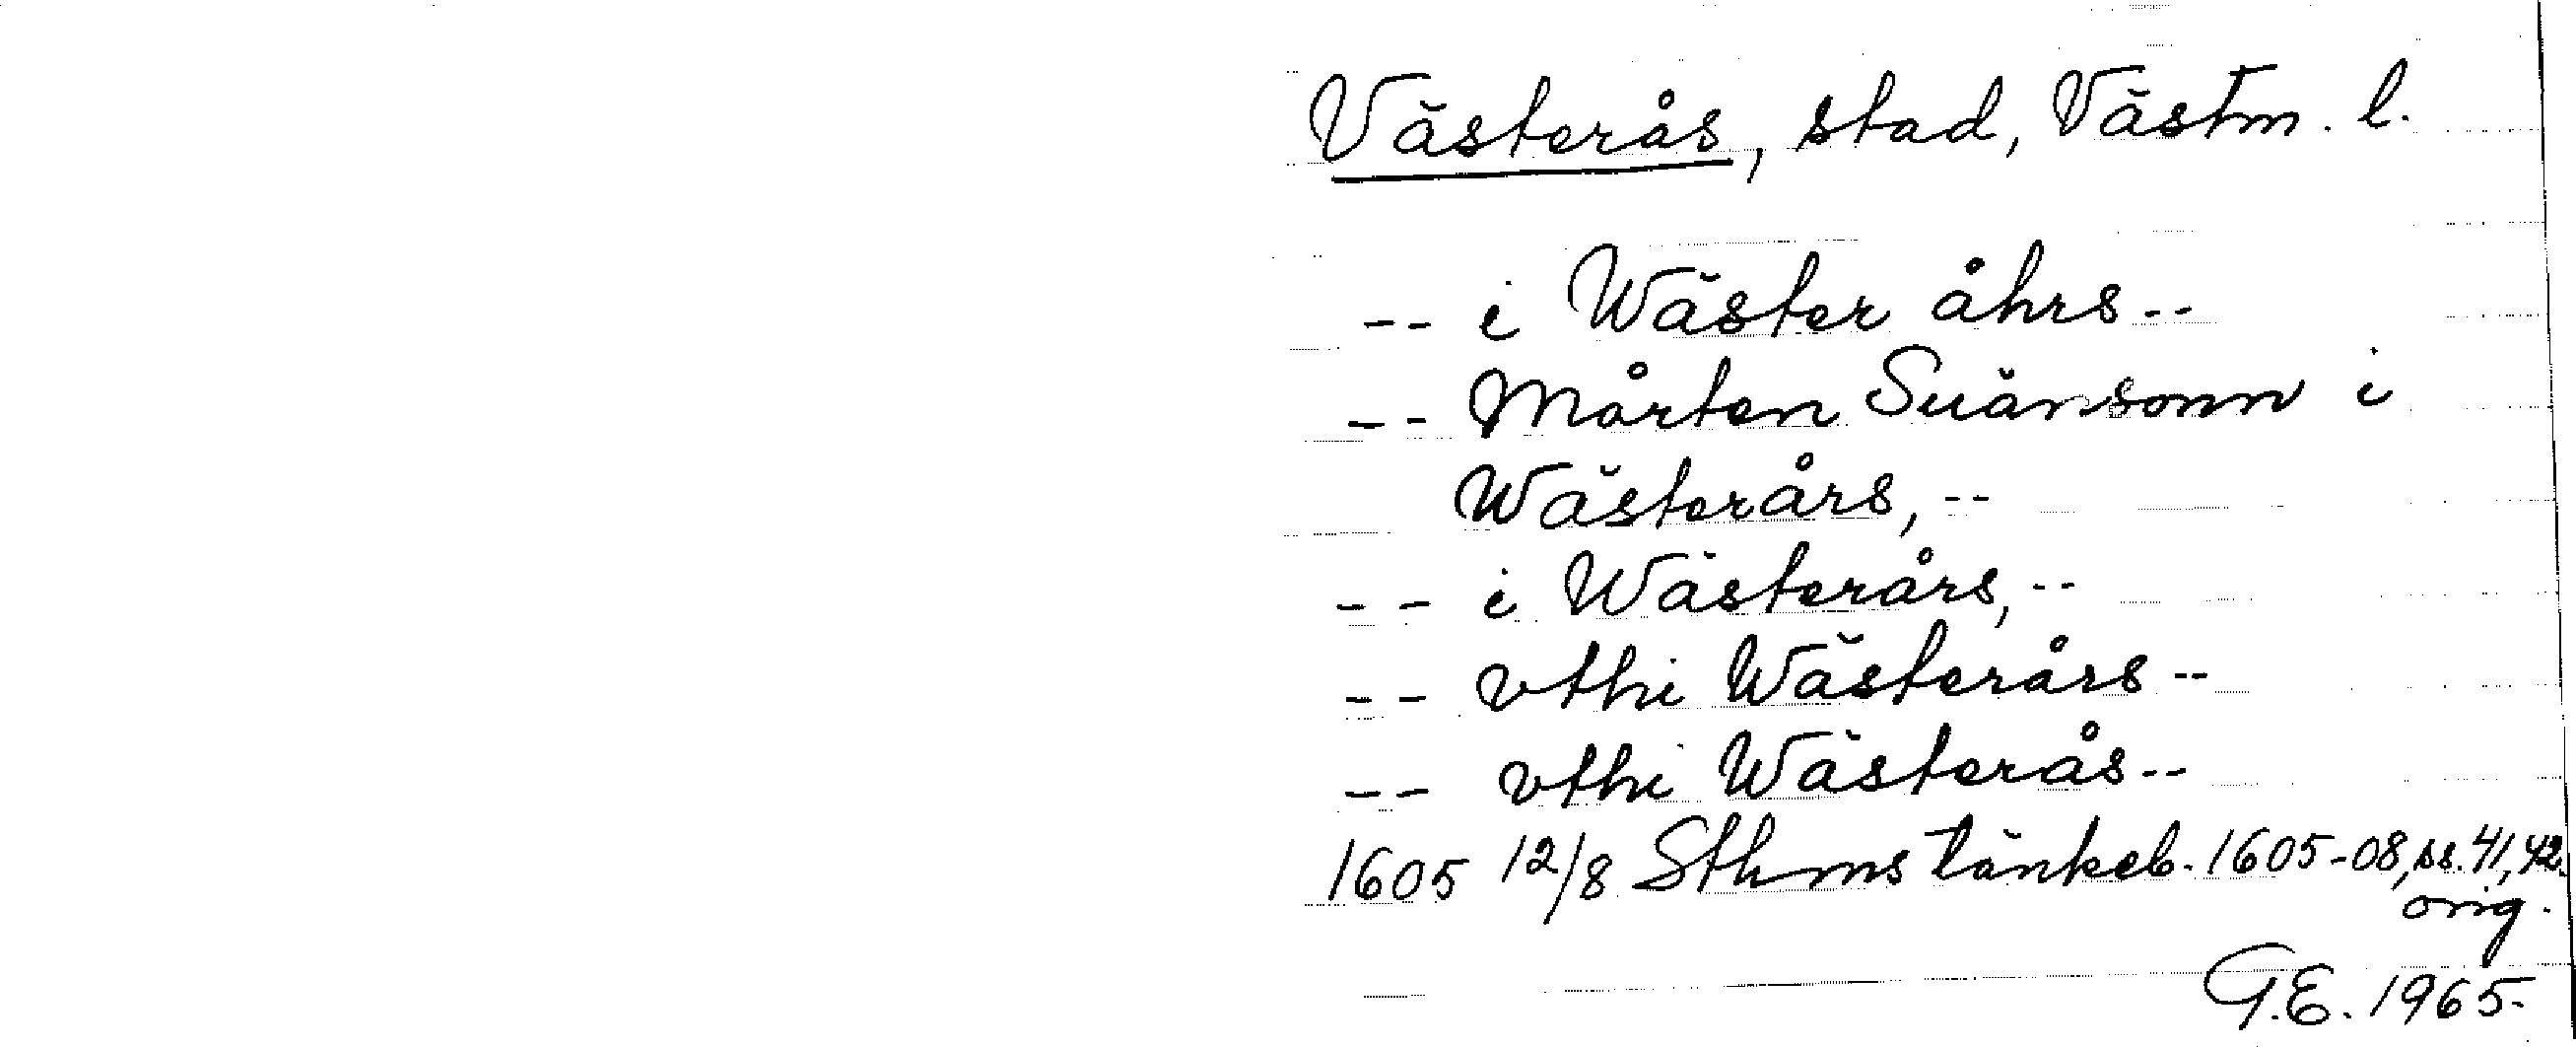 Västerås, stad, Västm. l.
-- i Wäster åhrs --
-- Mårten Suänsonn i
Wästerårs, --
-- i Wästerårs, --
-- vthi Wästerårs --
-- vthi Wästerås --
1605 12/8 Sthms tänkeb. 1605-08, ss. 41, 42.
orig.
G.E. 1965.